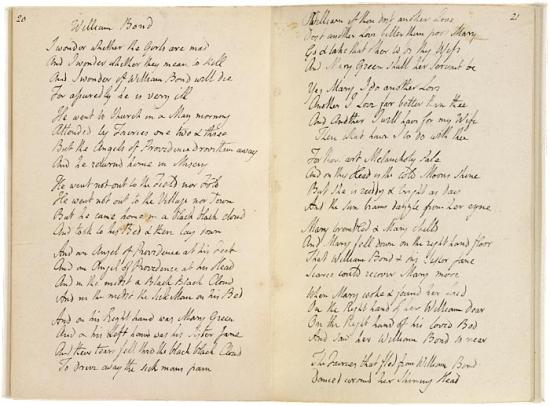 20
William Bond
I wonder whether the Girls are mad
And I wonder whether they mean to kill
And I wonder if William Bond will die
For assuredly he is very ill
He went to Church in a May morning
Attended by Fairies one two & three
But the Angels of Providence drove them away
And he returnd home in Misery
He went not out to the Field nor Fold
He went not out to the Village nor Town
But he came home in a black black cloud
And took to his Bed & there lay down
And an Angel of Providence at his Feet
And an Angel of Providence at his Head
And in the midst a Black Black Cloud
And in the midst the Sick Man on his Bed
And on his Right hand was Mary Green
And on his Left hand was his Sister Jane
And their tears fell thro the black black Cloud
To drive away the sick mans pain
21
William if thou dost another Love
Dost another Love better than poor Mary
Go & take that other to be thy Wife
And Mary Green shall her Servant be
Yes Mary I do another Love
Another I Love far better than thee
And Another I will have for my Wife
Then what have I to do with thee
For thou art Melancholy Pale
And on thy Head is the cold Moons shine
But She is ruddy & bright as day
And the sun beams dazzle from her eyne
Mary trembled & Mary chilld
And Mary fell down on the right hand floor
That William Bond & his Sister Jane
Scarce could recover Mary more
When Mary woke & found her Laid
On the Right hand of her William Dear
On the Right hand of his loved Bed
And saw her William Bond so near
The Fairies that fled from William Bond
Danced around her Shining Head